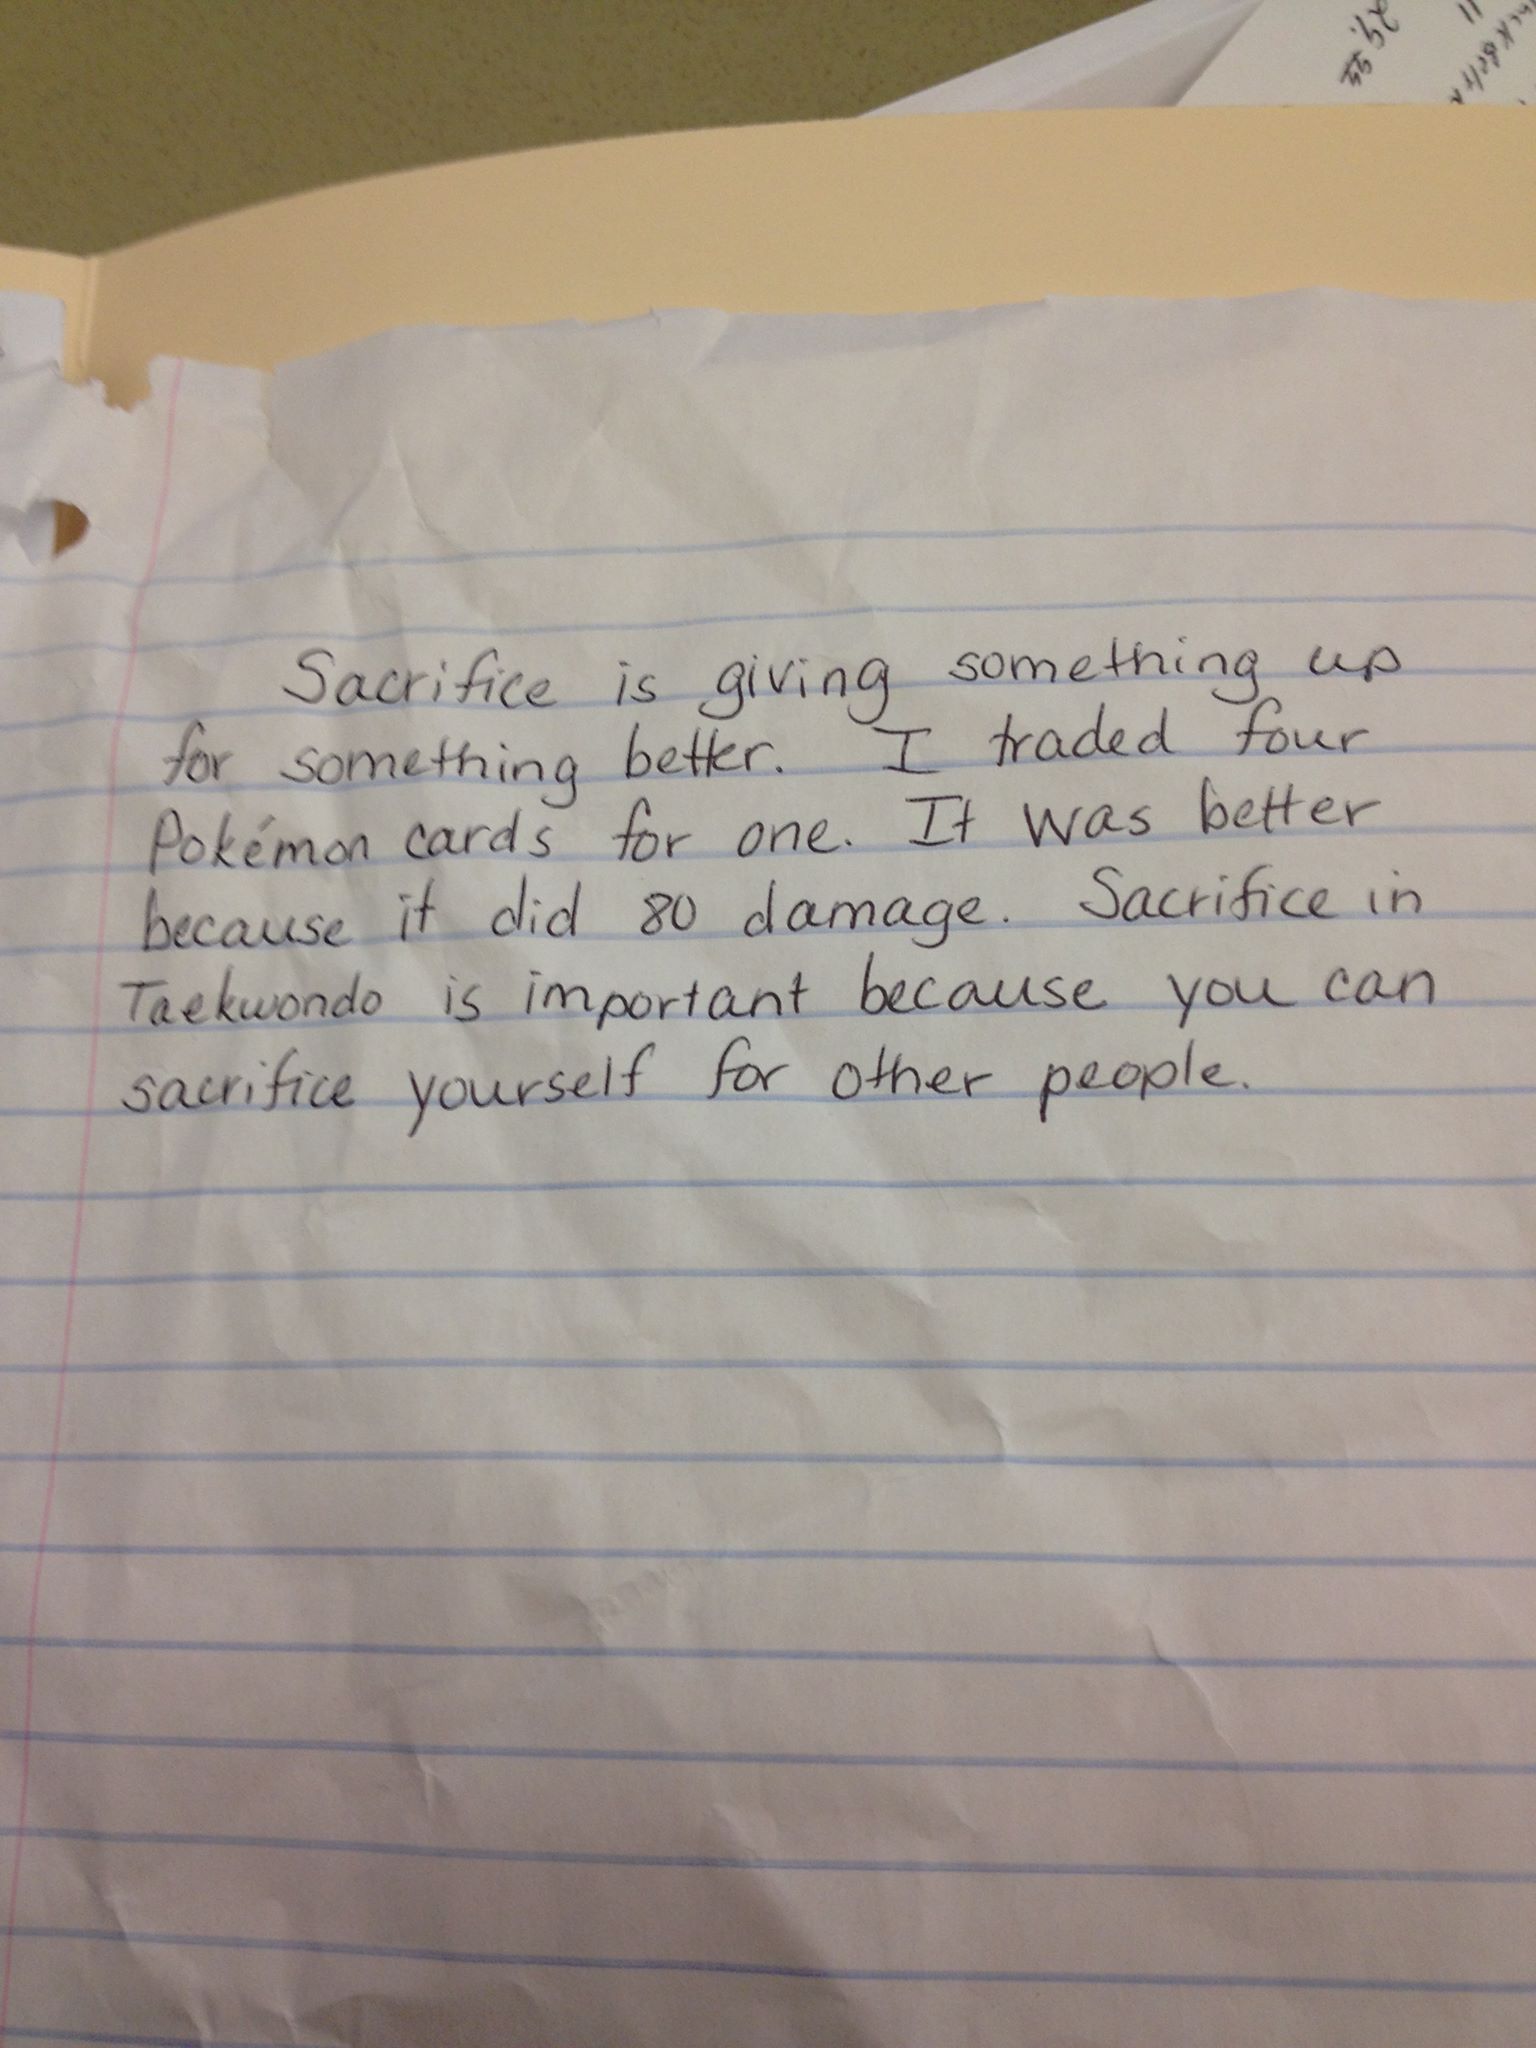 29.95
Sacrifice is giving something up
for something better. I traded four
Pokémon cards for one. It was better
because it did 80 damage. Sacrifice in
Taekwondo is important because you can
sacrifice yourself for other people.